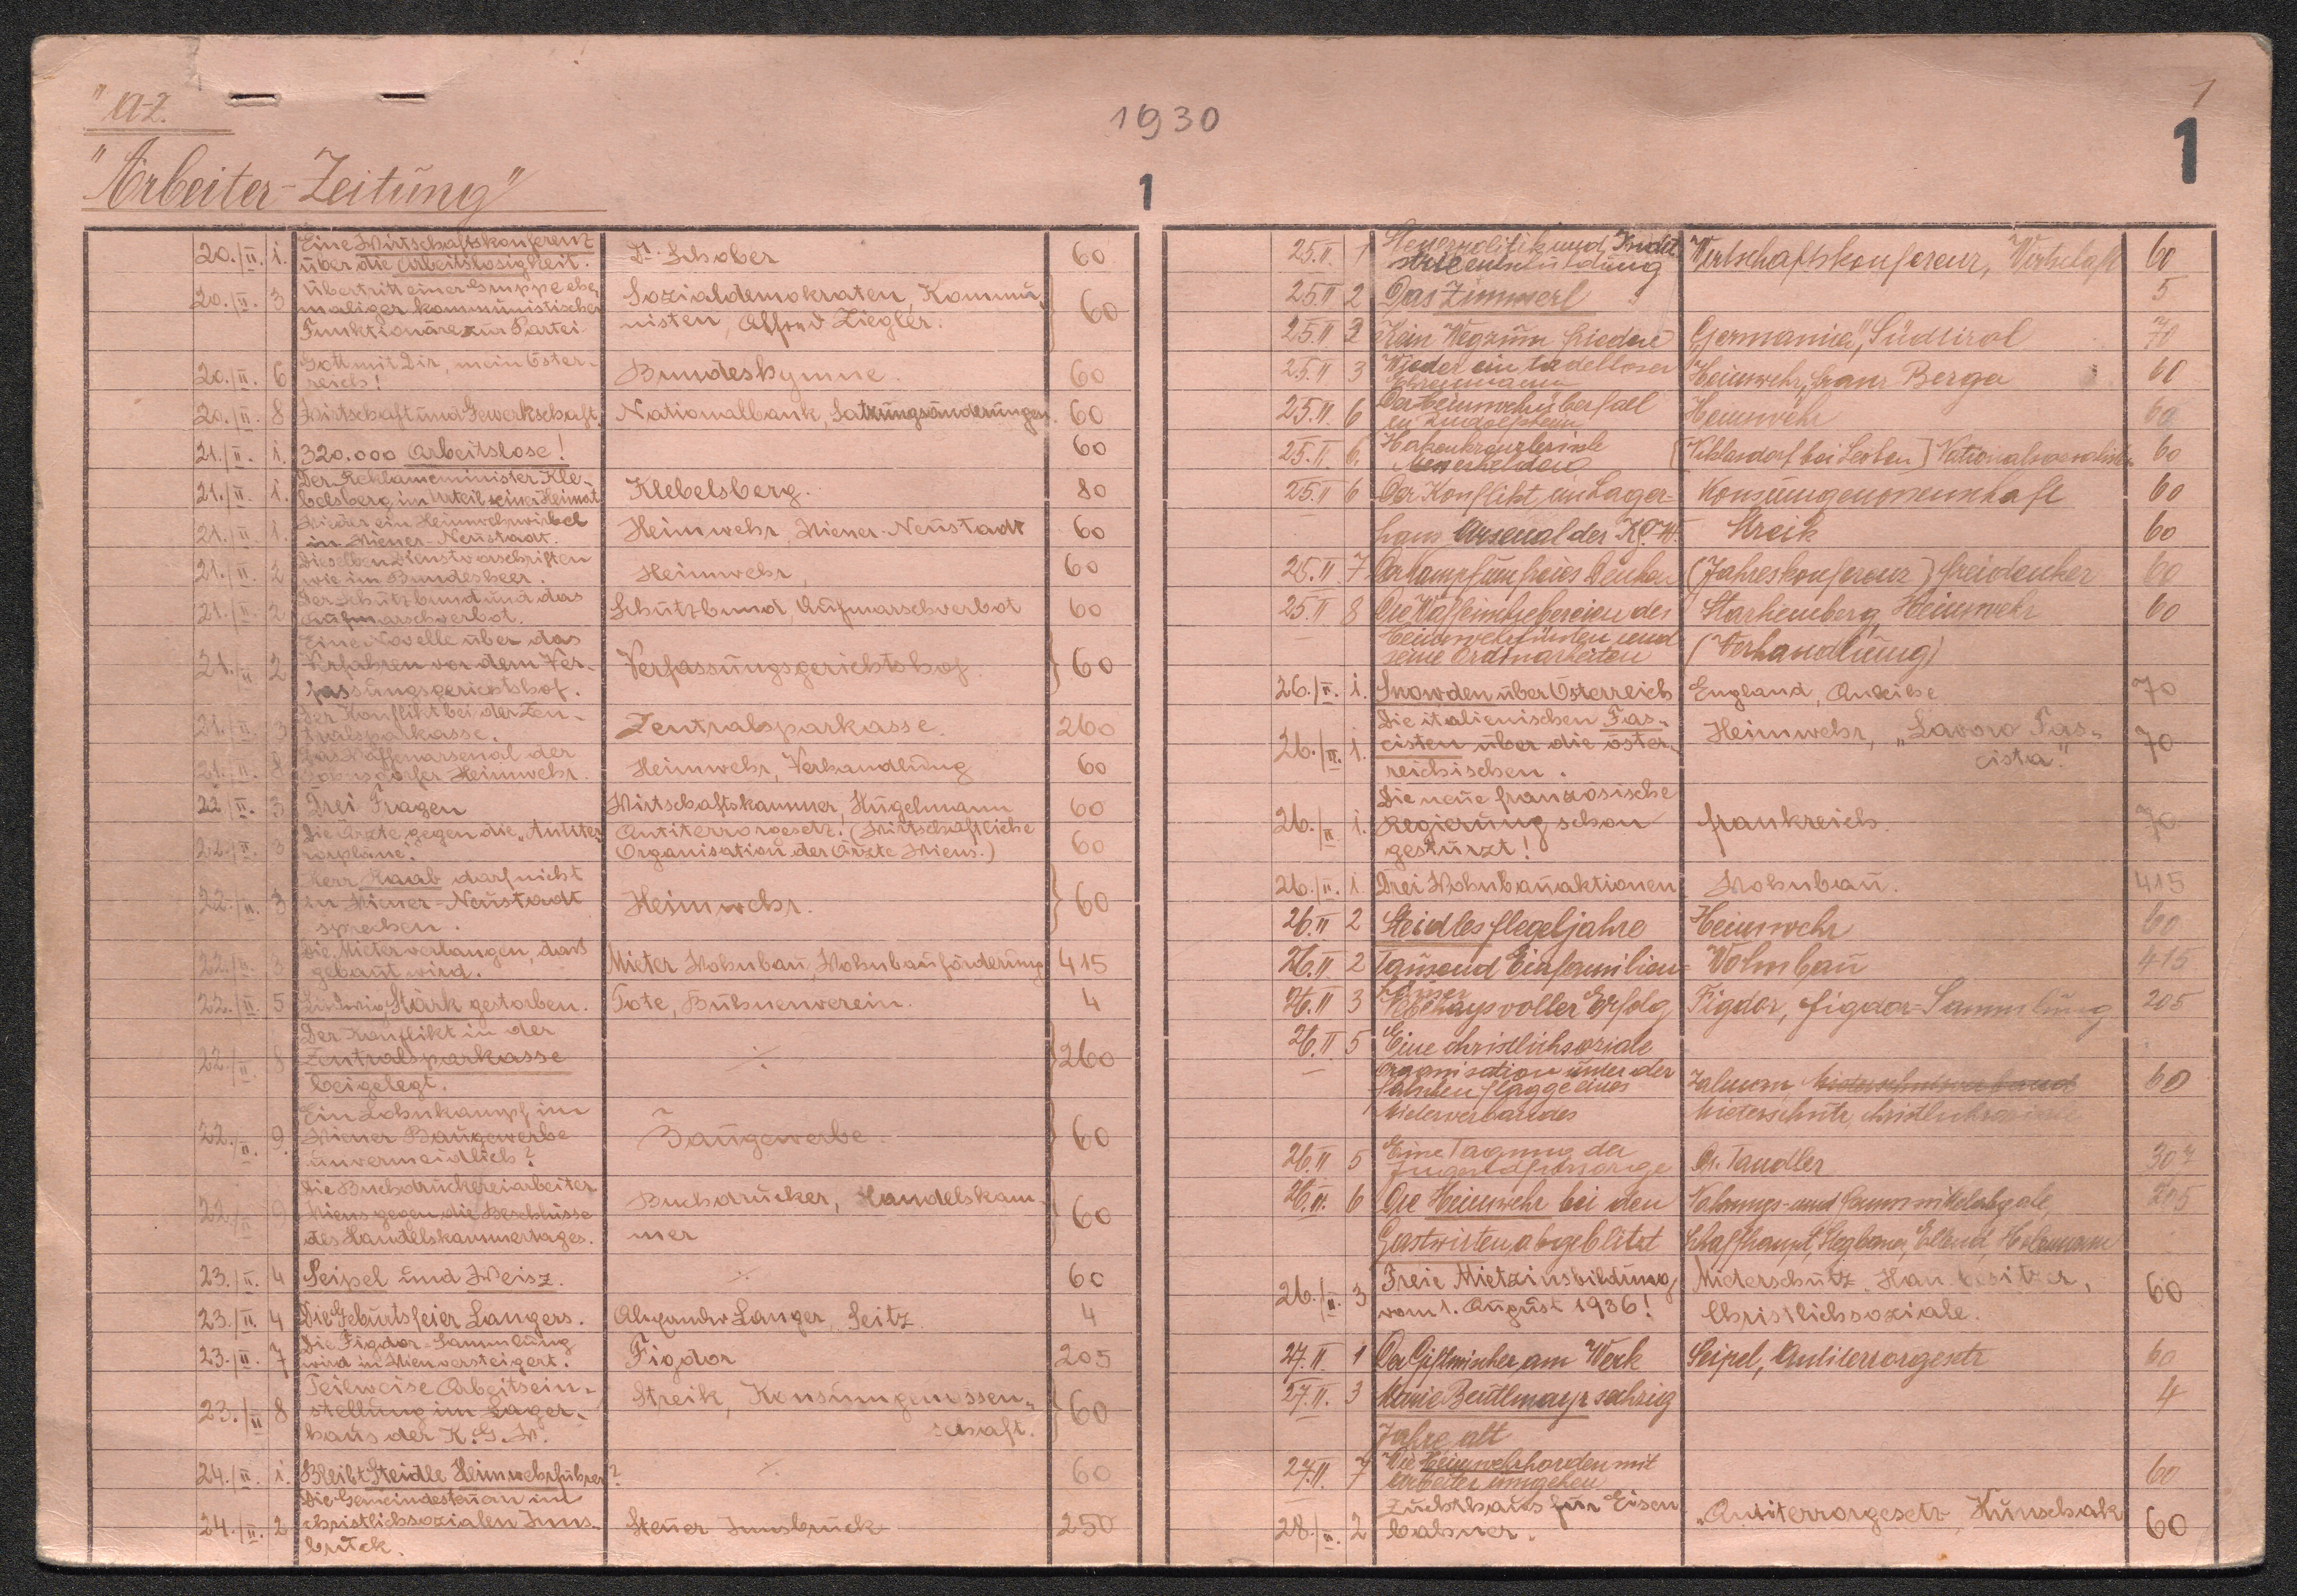 "A-Z.
1930
1
1
"Arbeiter-Zeitung"
1
20./II. 1. Eine Wirtschaftskonferenz Dr. Schober 60
über die Arbeitslosigkeit.
20./II. 3 Übertritt einer Gruppe ehe- Sozialdemokraten, Kommu- 60
maliger kommunistischer nisten, Alfred Ziegler.
Funktionäre zur Partei
20./II. 6 Gott mit Dir, mein Öster- Bundeshymne. 60
reich!
20./II. 8 Wirtschaft und Gewerkschaft. Nationalbank, Satzungsänderungen. 60
21./II. 1. 320.000 Arbeitslose! 60
21./II. 1. Der Reklameminister Kle- Klebelsberg. 80
belsberg im Urteil seiner Heimat
21./II. 1. Wieder ein Heimwehrwirbel Heimwehr, Wiener-Neustadt 60
in Wiener-Neustadt.
21./II. 2 Dieselben Dienstvorschriften Heimwehr, 60
wie im Bundesheer.
21./II. 2 Der Schutzbund und das Schutzbund, Aufmarschverbot 60
Aufmarschverbot.
21./II 2 Eine Novelle über das Verfassungsgerichtshof. 60
Verfahren vor dem Ver-
fassungsgerichtshof.
21./II. 3 Der Konflikt bei der Zen- Zentralsparkasse. 260
tralsparkasse.
21./II. 8 Das Waffenarsenal der Heimwehr, Verhandlung 60
Heimwehr.
22./II. 3 Drei Fragen Wirtschaftskammer, Hugelmann 60
22./II. 3 Die Ärzte gegen die "Antiter- Antiterrorgesetz. (Wirtschaftliche 60
rorpläne". Organisation der Ärzte Wiens.)
22./II. 3 Herr Raab darf nicht Heimwehr. 60
in Wiener-Neustadt
sprechen.
22./II. 3 Die Mieter verlangen, dass Mieter, Wohnbau, Wohnbauförderung 415
gebaut wird.
22./II. 5 Ludwig Stärk gestorben. Tote, Bühnenverein. 4
22./II. 8 Der Konflikt in der ./. 260
Zentralsparkasse
beigelegt.
22./II. 9. Ein Lohnkampf im Baugewerbe. 60
Wiener Baugewerbe
unvermeidlich?
22./II 9 Die Buchdruckereiarbeiter Buchdrucker, Handelskam- 60
Wiens gegen die Beschlüsse mer
des Handelskammertages.
23./II. 4 Seipel und Weisz. ./. 60
23./II. 4 Die Geburtsfeier Langers. Alexander Langer, Seitz. 4
23./II. 7 Die Figdor-Sammlung Figdor 205
wird in Wien versteigert.
23./II 8 Teilweise Arbeitsein- Streik, Konsumgenossen- 60
stellung im Lager- schaft.
haus der K.G.W.
24./II. 1. Bleibt Steidle Heimwehrführer? ./. 60
24./II. 2 Die Gemeindesteuern im Steuer Innsbruck 250
christlichsozialen Inns-
bruck.
25.II. 1 Steuerpolitik und Indu- Wirtschaftskonferenz, Wirtschaft 60
strieentschuldung
25.II 2 Das Zimmerl 5
25.II 2 Kein Weg zum Frieden "Germania", Südtirol 70
25.II 3 Wieder ein tadelloser Heimwehr, Franz Berger 60
Ehrenmann
25.II. 6 Der Heimwehrüberfall Heimwehr 60
in Rudolfsheim
25.II. 6. Hakenkreuzlerische [ bei Leoben] Nationalsozialisten 60
Messerhelden
25.II 6 Der Konflikt im Lager- Konsumgenossenschaft 60
haus Arsenal der K.G.W. Streik 60
25.II. 7 Der Kampf um freies Denken (Jahreskonferenz) Freidenker 60
25.II 8 Die Waffenschiebereien des Starhemberg, Heimwehr 60
Heimwehrfürsten und (Verhandlung)
seine
26./II. 1. Snowden über Österreich England, Anleihe 70
26./II. 1. Die italienischen Fas- Heimwehr, "Lavoro Fas- 70
cisten über die öster- cista".
reichischen.
26./II 1. Die neue französische Frankreich. 70
Regierung schon
gestürzt!
26./II. 1. Drei Wohnbauaktionen Wohnbau. 415
26.II 2 Steidles Flegeljahre Heimwehr 60
26.II 2 Tausend Einfamilien- Wohnbau 415
häuser
26.II 3 voller Erfolg Figdor, Figdor-Sammlung 205
26.II 5 Eine christlichsoziale
Organisation unter der Zalman 60
falschen Flagge eines
Mieterverbandes Mieterschutz, christlichsoziale
26.II 5 Eine Tagung der Dr. Tandler 307
Jugendfürsorge
26.II. 6 Die Heimwehr bei den Nahrungs- und 205
Gastwirten abgeblitzt
26./II. 3 Freie Mietzinsbildung Mieterschutz, Hausbesitzer, 60
vom 1. August 1936! Christlichsoziale.
27.II. 1 Der Giftmischer am Werk Seipel, Antiterrorgesetz 60
27.II. 3 Marie Beutlmayr sechzig 4
Jahre alt
27.II 7 Wie Heimwehrhorden mit 60
Arbeiter umgehen
28./II. 2 Zuchthaus für Eisen- "Antiterrorgesetz, Kunschak 60
bahner.